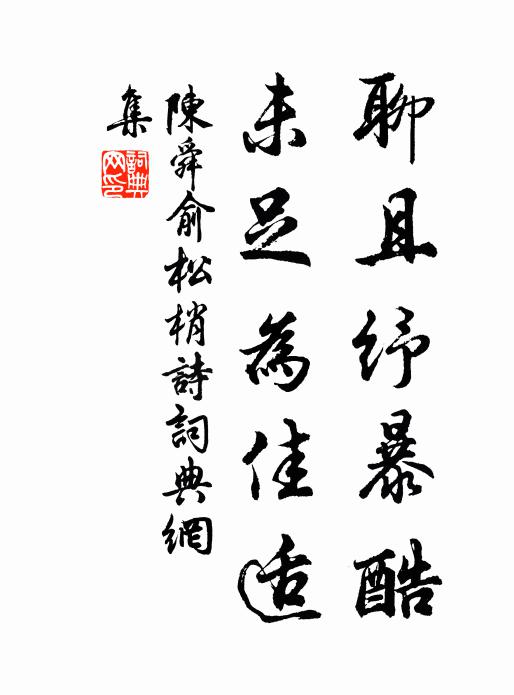 聊且紓暴酷
未足為佳适
陳舜俞松梢詩詞典網
集
詞典网印